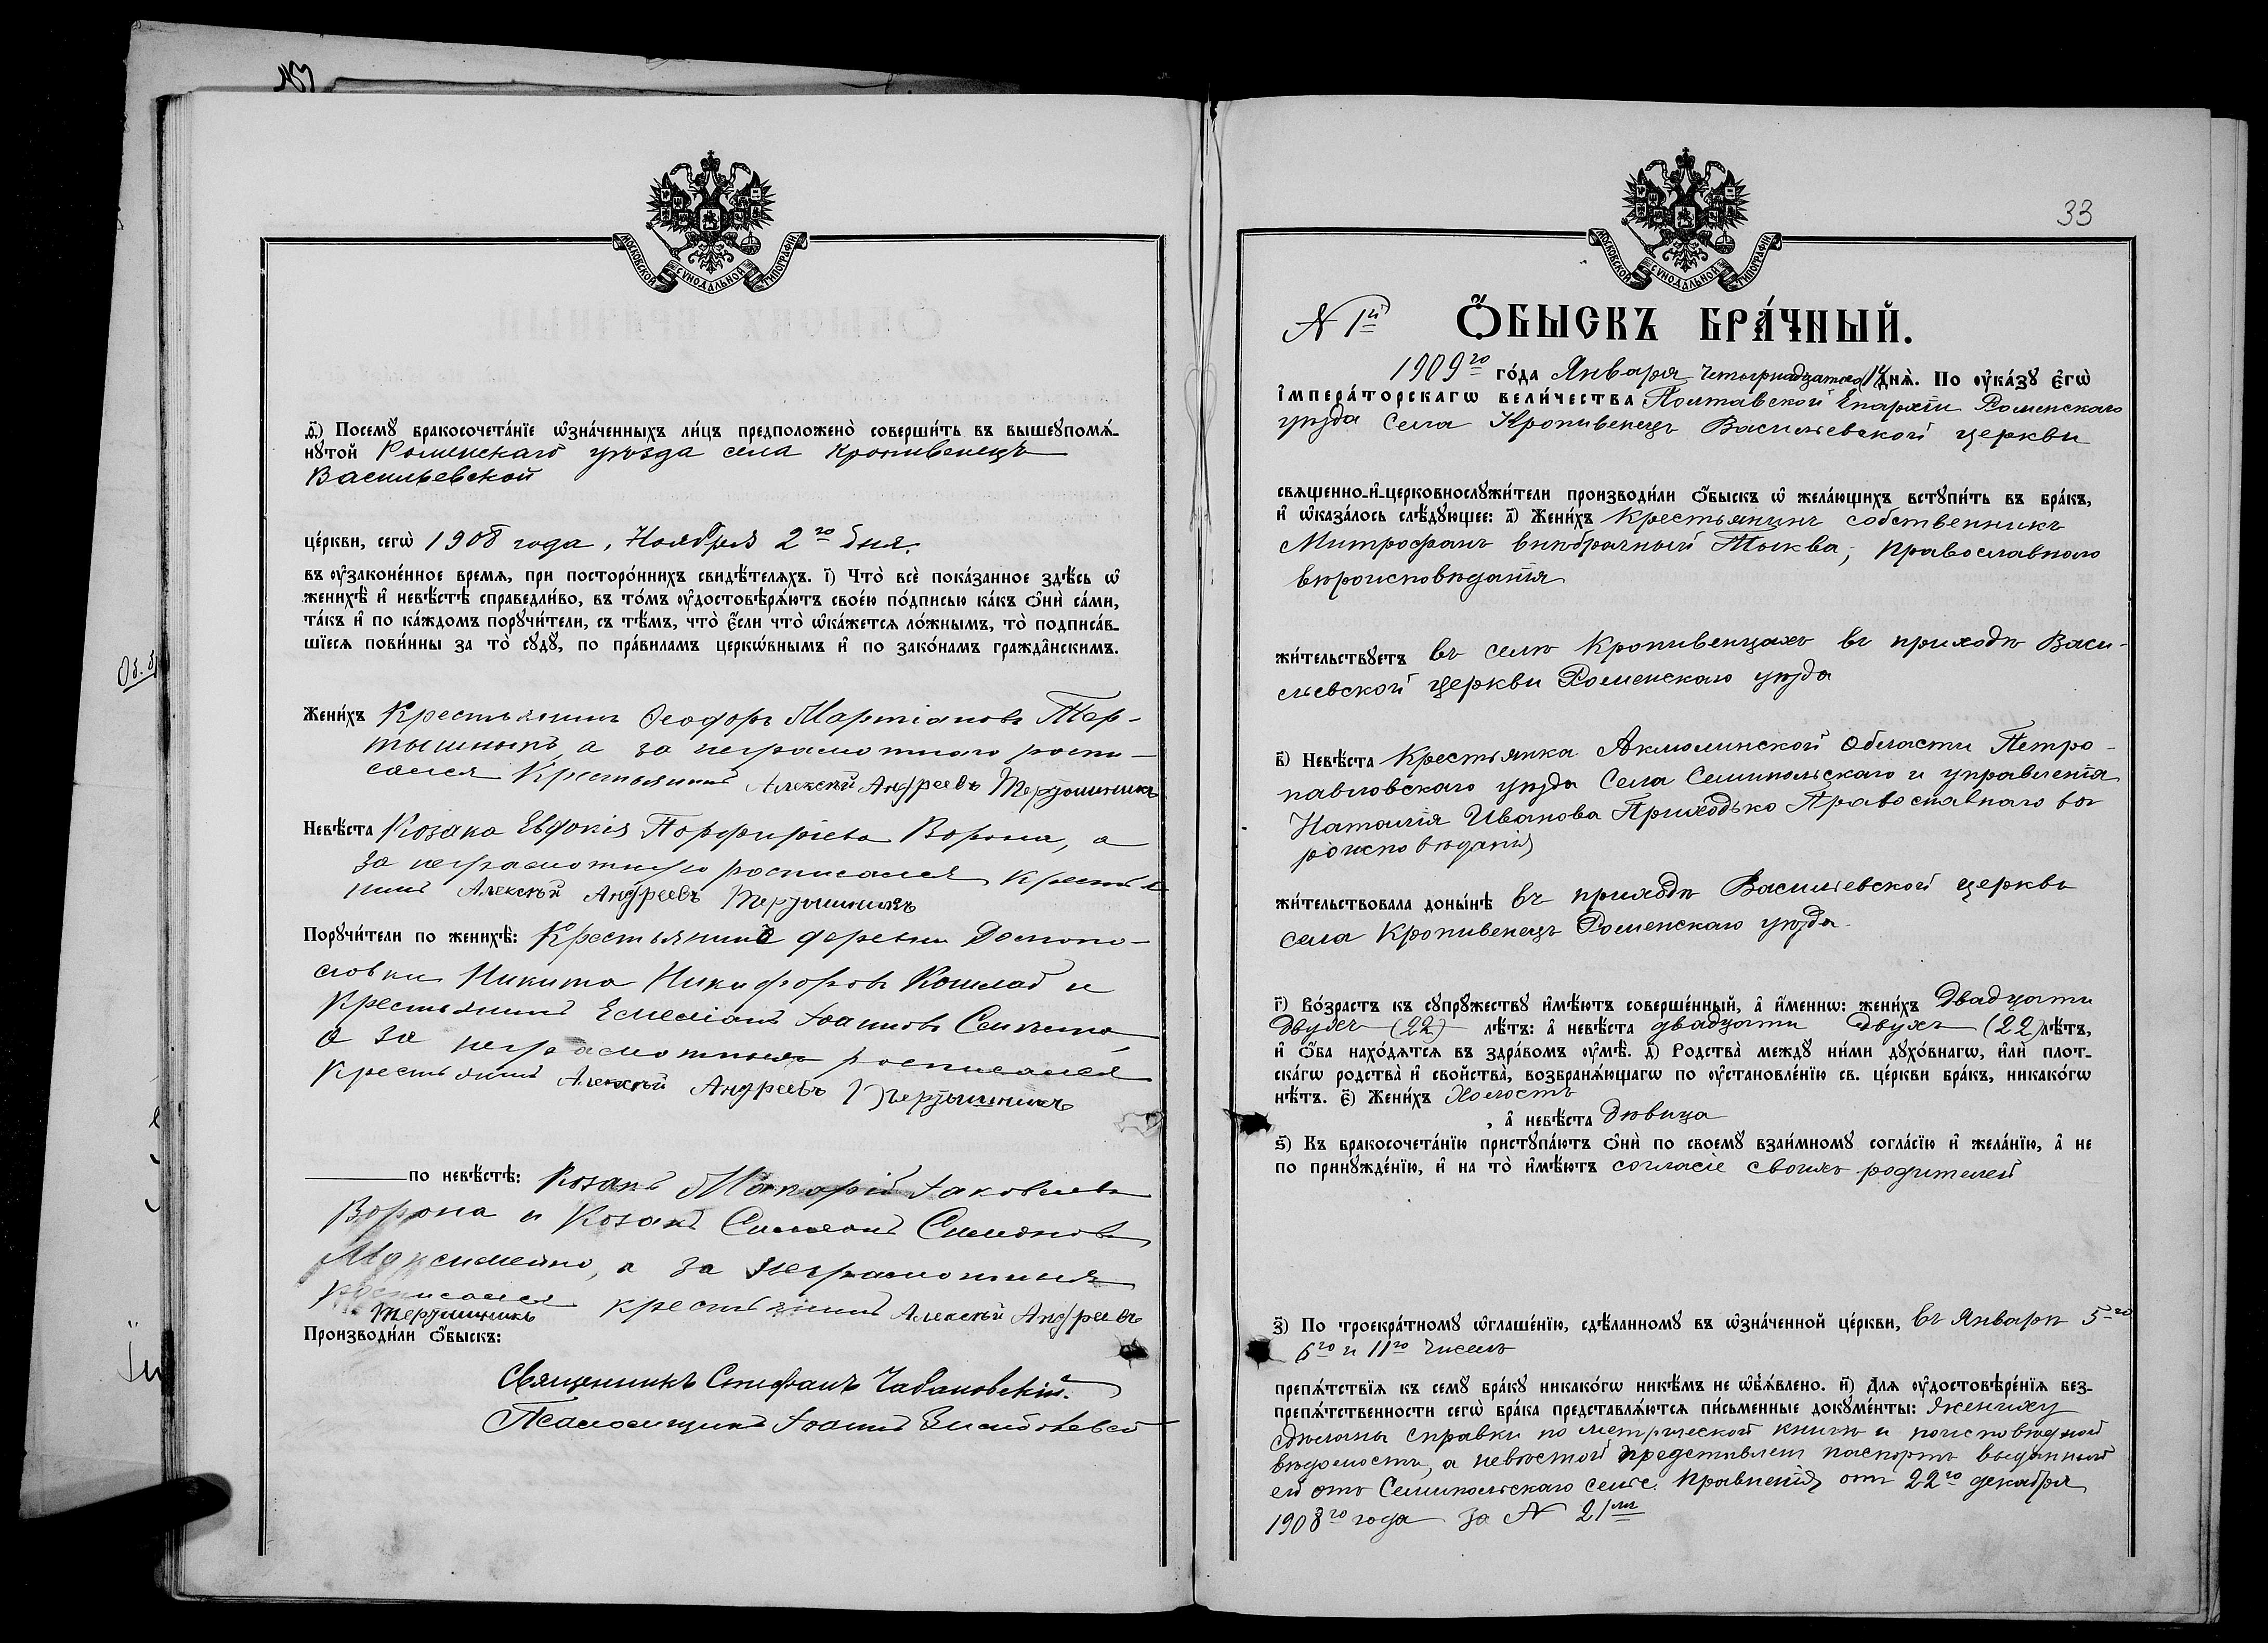 МОСКОВСКОЙ СѴНОДАЛЬНОЙ ТИПОГРАФІИ
ѳ҃) Посемꙋ бракосочета́нїе ѡ҆зна́ченныхъ ли́цъ предположено̀ соверши́ть въ вышеꙋпомѧ́-
нꙋтой Роменскаго уѣзда села Кропивенецъ
Васильевской
це́ркви, сегѡ̀ 1908 года, Ноября 2го дня.
въ ᲂу҆законе́нное время, при посторо́ннихъ свидѣ́телѧхъ. і҃) Что̀ всѐ пока́занное здѣ́сь ѡ҆
женихѣ̀ и҆ невѣ́стѣ справедли́во, въ то́мъ ᲂу҆достовѣрѧ́ютъ свое́ю по́дписью ка́къ ѻ҆нѝ са́ми,
та́къ и҆ по ка́ждомъ порꙋчи́тели, съ тѣ́мъ, что̀ є҆́сли что̀ ѡ҆ка́жетсѧ ло́жнымъ, то̀ подписа́в-
шїесѧ пови́нны за то̀ сꙋдꙋ̀, по пра́виламъ церкѡ́внымъ и҆ по зако́намъ гражда̑нскимъ.
Жени́хъ Крестьянинъ Ѳеодоръ Мартіановъ Тер-
тышникъ, а за неграмотного роспи-
сался Крестьянинъ Алексѣй Андреевъ Тертышникъ
Невѣ́ста Козака Евдокія Порфиріева Ворона, а
за неграмотную росписался Крестья
нинъ Алексѣй Андреевъ Тертышникъ
Порꙋчи́тели по женихѣ̀: Крестьянинъ деревни
Никита Никифоровъ Кошлаб и
Крестьянинъ Емеліанъ Іоанновъ
а за неграмотныхъ росписался
Крестьянинъ Алексѣй Андреевъ Тертышникъ
по невѣ́стѣ: Козакъ Макарій Іаковлевъ
Ворона и Козакъ Симеонъ Симеоновъ
а за неграмотныхъ
росписался крестьянинъ Алексѣй Андреевъ
Тертышникъ
Производи́ли ѻ҆́быскъ:
Священникъ Стефанъ Чабановскій.
Псаломщикъ Іоаннъ
33
МОСКОВСКОЙ СѴНОДАЛЬНОЙ ТИПОГРАФІИ
N 1й
Ѻ҆́БЫСКЪ БРА́ЧНЫЙ.
1909го го́да Января четырнадцатаго 14 днѧ̀. По ᲂу҆ка́зꙋ є҆гѡ̀
і҆мпера́торскагѡ вели́чества Полтавской Епархіи Роменскаго
уѣзда Села Кропивенецъ Васильевской церкви
свѧщенно-и҆-церковнослꙋжи́тели производи́ли ѻ҆́быскъ ѡ҆ жела́ющихъ встꙋпи́ть въ бра́къ,
и҆ ѡ҆каза́лось слѣ́дꙋющее: а҃) Жени́хъ Крестьянинъ собственникъ
Митрофанъ внѣбрачный Тыква, Православнаго
вѣроисповѣданія
жи́тельствꙋетъ въ селѣ Кропивенцахъ въ приходѣ Васи-
льевской церкви Роменскаго уѣзда
в҃) Невѣ́ста Крестьянка Акмолинской Области Петро-
павловскаго уѣзда Села Семипольскаго и управленія
Наталія Иванова Приходько Православнаго вѣ
роисповѣданія
жи́тельствовала доны́нѣ въ приходѣ Васильевской церкви
села Кропивенецъ Роменскаго уѣзда.
г҃) Во́зрастъ къ сꙋпрꙋ́жествꙋ и҆мѣ́ютъ соверше́нный, а҆ и҆́меннѡ: жени́хъ двадцати
двухъ (22) лѣ́тъ: а҆ невѣ́ста двадцати двухъ (22) лѣ́тъ,
и҆ ѻ҆́ба нахо́дѧтсѧ въ здра́вомъ ᲂу҆мѣ̀. д҃) Родства̀ междꙋ̀ ни́ми дꙋхо́внагѡ, и҆лѝ плот-
ска́гѡ родства̀ и҆ свойства̀, возбранѧ́ющагѡ по ᲂу҆становле́нїю св. це́ркви бра́къ, никако́гѡ
нѣ́тъ. є҃) Жени́хъ Холостъ
, а҆ невѣ́ста дѣвица
ѕ҃) Къ бракосочета́нїю пристꙋпа́ютъ ѻ҆нѝ по своемꙋ̀ взаи́мномꙋ согла́сїю и҆ жела́нїю, а҆ не
по принꙋжде́нїю, и҆ на то̀ и҆мѣ́ютъ согласіе своихъ родителей
з҃) По троекра́тномꙋ ѡ҆глаше́нїю, сдѣ́ланномꙋ въ ѡ҆зна́ченной це́ркви, въ Январѣ 5го
6го и 11го чиселъ
препѧ́тствїѧ къ семꙋ̀ бра́кꙋ никако́гѡ никѣ́мъ не ѡ҆б̾ѧ́влено. и҃) Длѧ ᲂу҆достовѣре́нїѧ без-
препѧ́тственности сегѡ̀ бра́ка представлѧ́ютсѧ пи́сьменные докꙋме́нты: Жениху
сдѣланы справки по метрической книгѣ и поисповѣдной
вѣдомости, а невѣстой представленъ паспортъ выданный
ей отъ Семипольскаго сельс. Правленія отъ 22го декабря
1908го года за N 21мъ